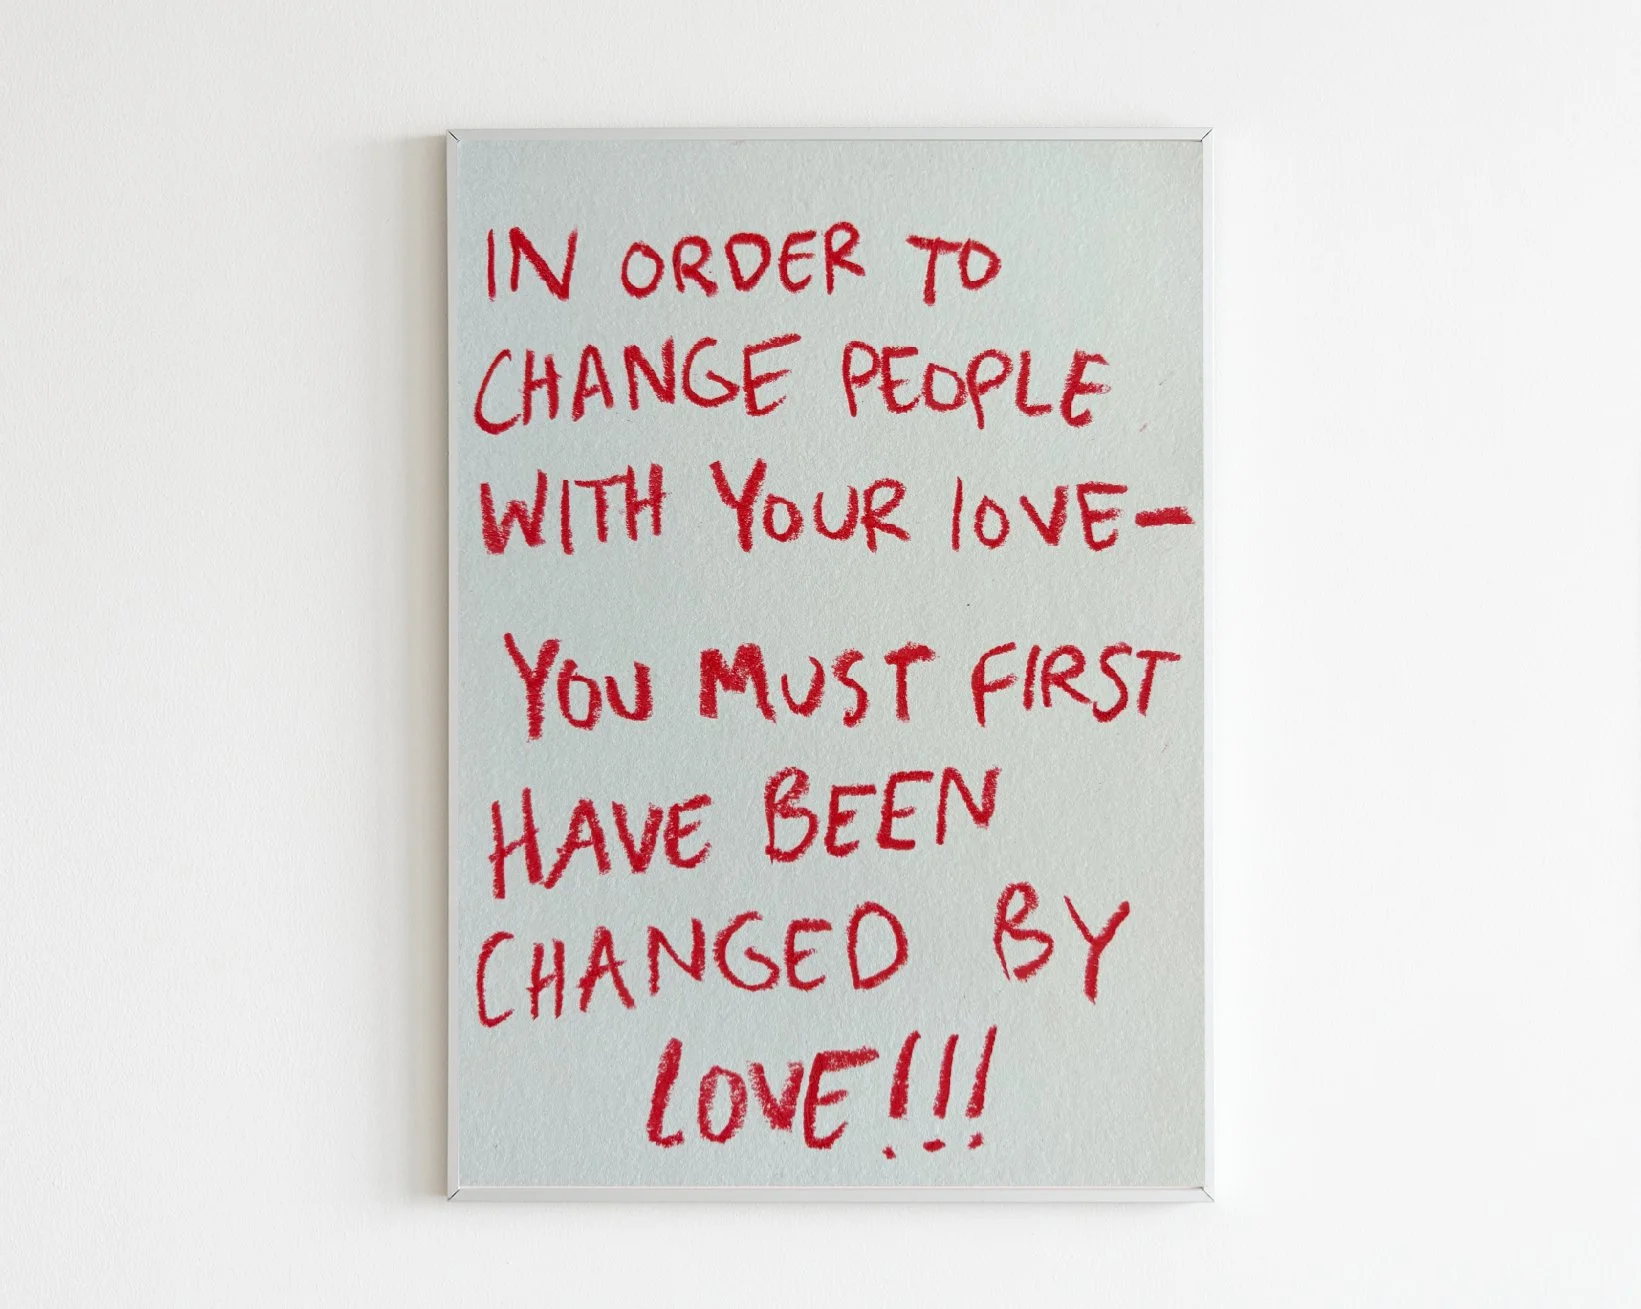 IN ORDER TO
CHANGE PEOPLE
WITH YOUR lOVE—
YOU MUST FIRST
HAVE BEEN
CHANGED BY
LOVE!!!